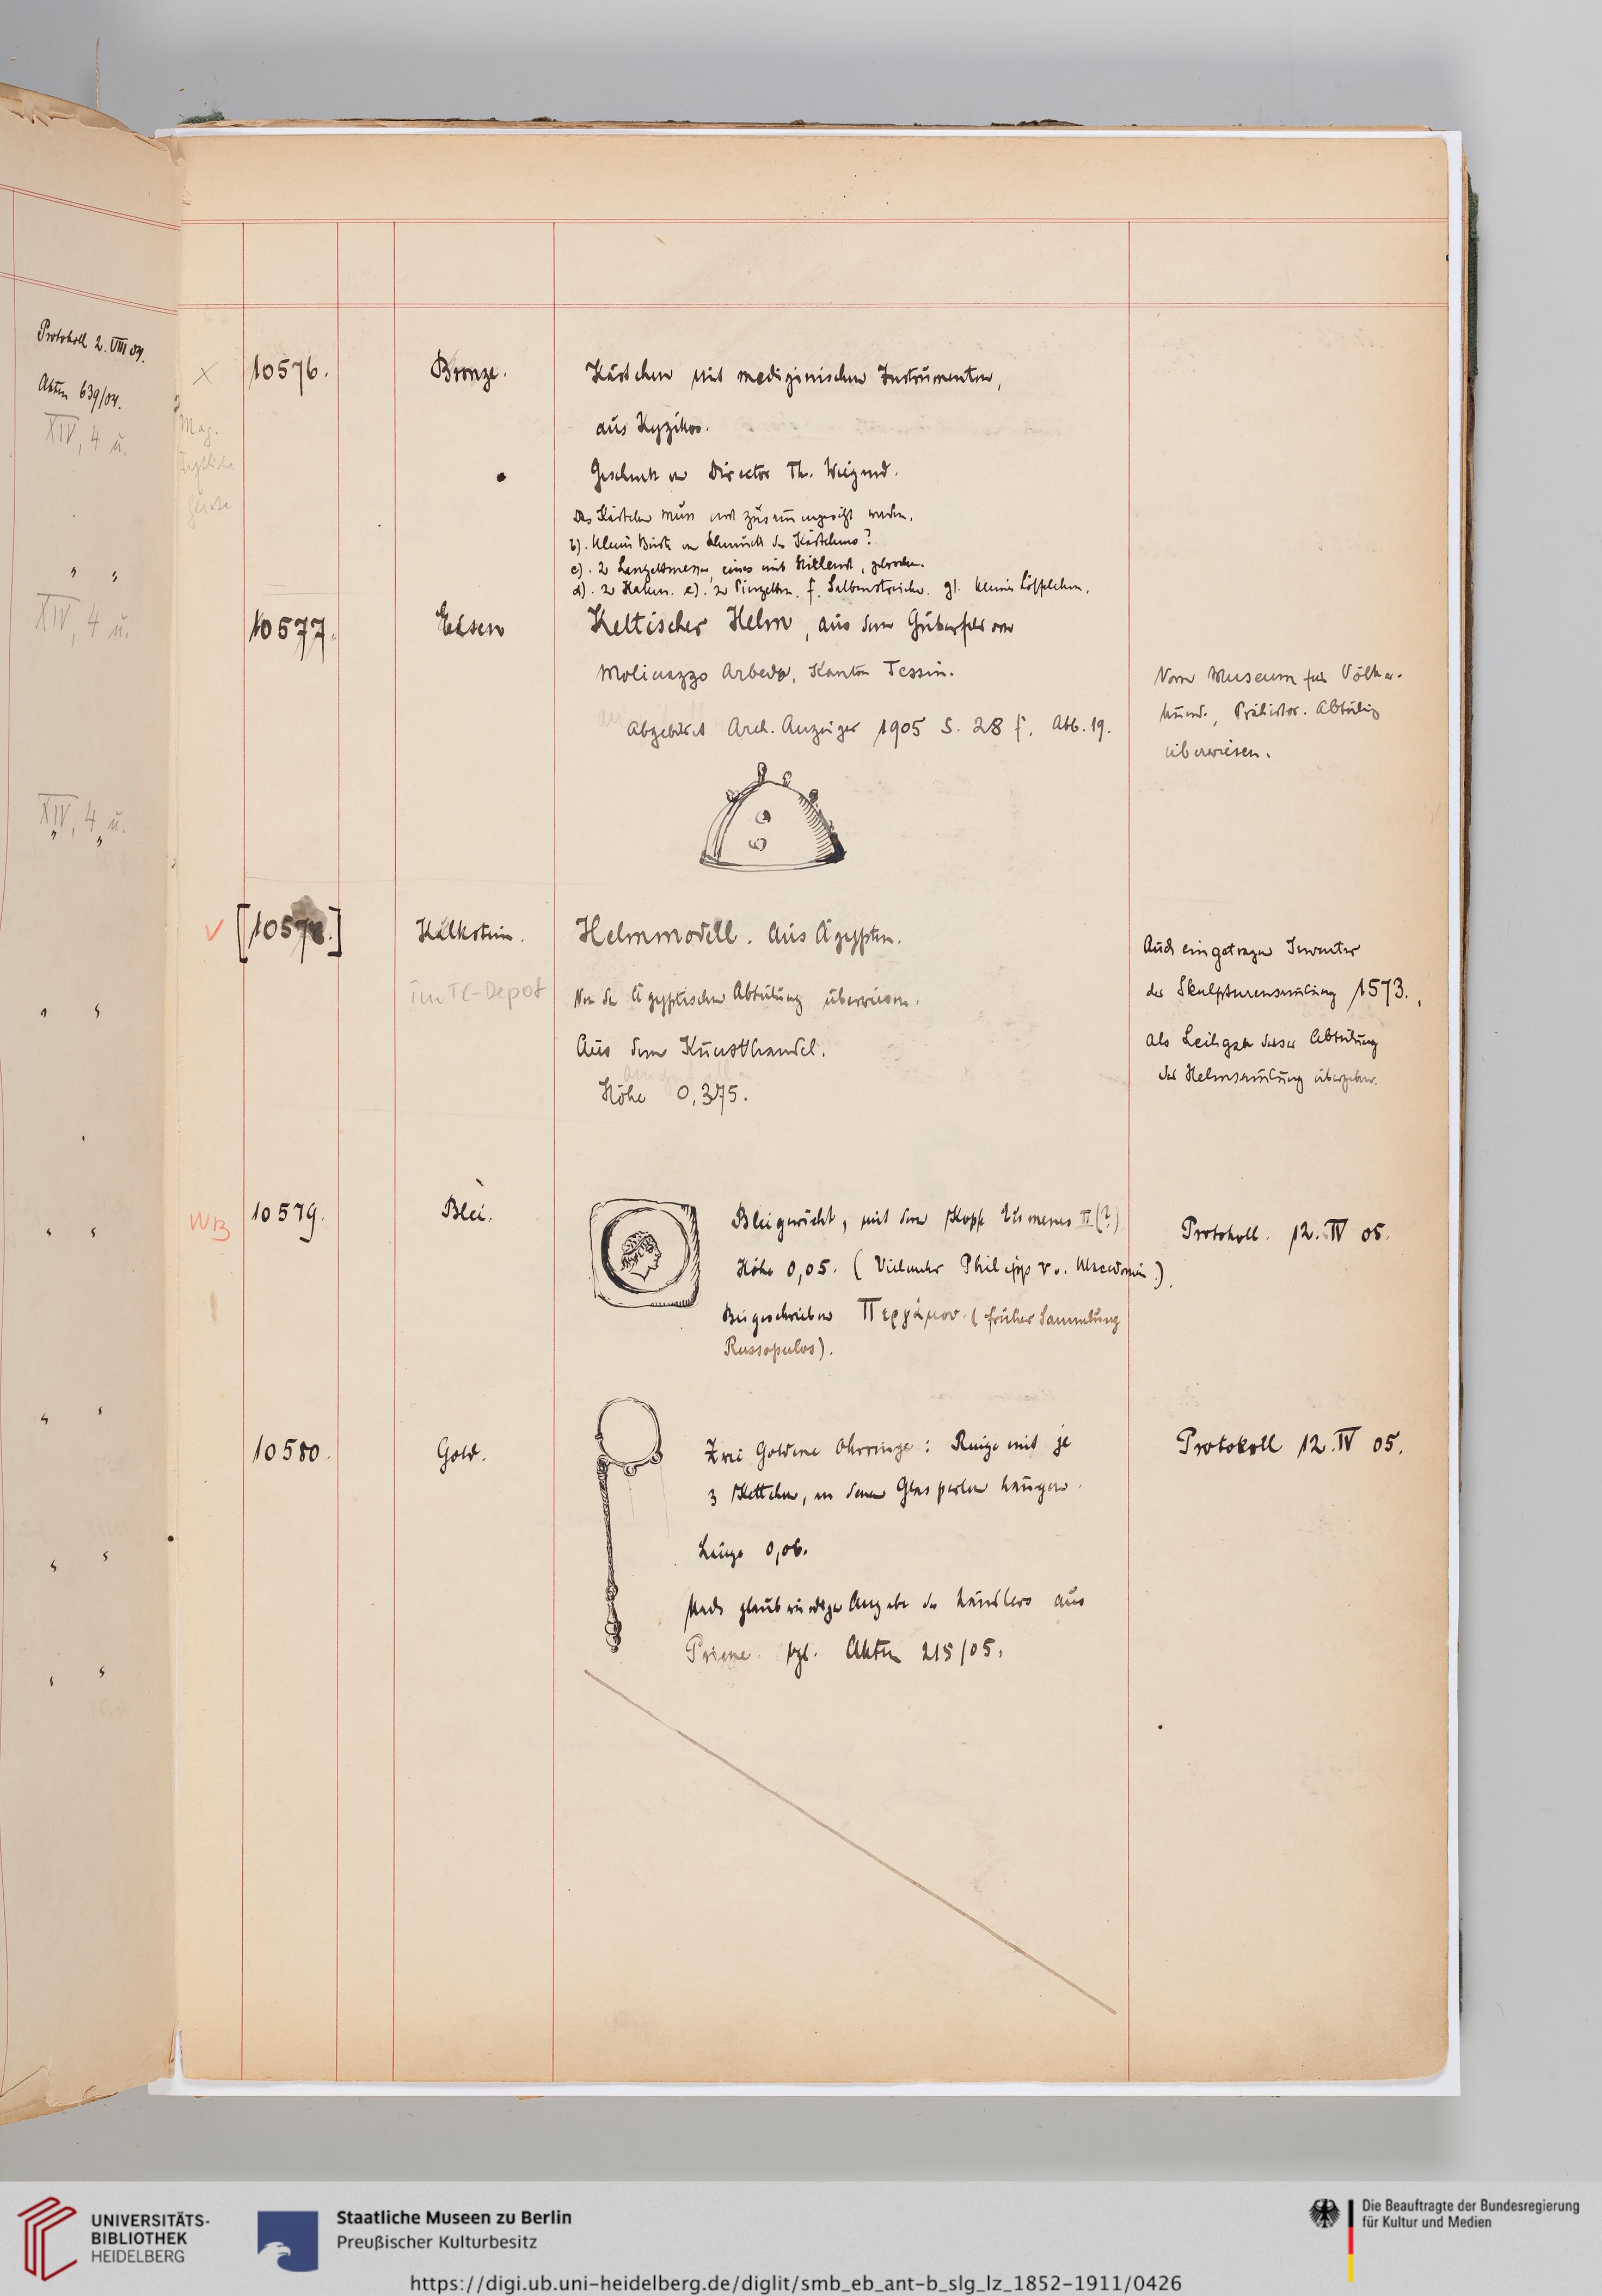 Protokoll 2. VIII 04.
Akten 639/04.
XIV, 4 u.
" "
XIV, 4 u.
XIV, 4 u.
" "
×
10576.
Bronze.
Kästchen mit medizinischen Instrumenten,
aus Kyzikos.
Geschenk von Director Th. Wiegand.
Mag.
Das Kästchen muss erst zusammengesetzt werden.
b). Kleine Büste vom Schmuck des Kästchens?
c). 2 Lanzettmesser, eines mit Mittelend, gebrochen.
d). 2 Haken. e). 2 Pinzetten. f. Salbenstreicher. g). kleines Löffelchen.
10577.
Eisen
Keltischer Helm, aus dem Gräberfeld von
Molinazzo Arbedo, Kanton Tessin.
Abgebildet Arch. Anzeiger 1905 S. 28 f. Abb. 19.
Vom Museum für Völker-
kunde, Prähistor. Abteilung
überwiesen.
√
[10578.]
Kalkstein.
Helmmodell. Aus Ägypten.
im TC-Depot
Von der Ägyptischen Abteilung überwiesen.
Aus dem Kunsthandel.
Höhe 0,375.
Auch eingetragen Inventar
der Skulpturensammlung 1573.,
als Leihgabe dieser Abteilung
der Helmsammlung übergeben.
WB
10579.
Blei.
Bleigewicht, mit dem Kopf Eumenes II (?)
Höhe 0,05. (Vielmehr Philipp V v. Macedonien.).
Beigeschrieben Περγάμου. (früher Sammlung
Russopulos).
Protokoll. 12. IV 05.
10580.
Gold.
Zwei Goldene Ohrringe: Ringe mit je
3 Kettchen, an denen Glasperlen hängen.
Länge 0,06.
Nach glaubwürdiger Angabe des Händlers aus
Priene. vgl. Akten 215/05.
Protokoll 12. IV 05.
UNIVERSITÄTS-
BIBLIOTHEK
HEIDELBERG
Staatliche Museen zu Berlin
Preußischer Kulturbesitz
Die Beauftragte der Bundesregierung
für Kultur und Medien
https://digi.ub.uni-heidelberg.de/diglit/smb_eb_ant-b_slg_lz_1852-1911/0426